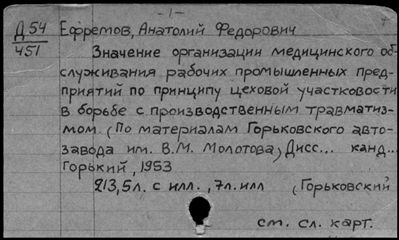 - 1 -
Д 54 Ефремов, Анатолий Федорович
451 Значение организации медицинского об-
служивания рабочих промышленных пред-
приятий по принципу цеховой участковости
в борьбе с производственным травматиз-
мом. (По материалам Горьковского авто-
завода им. В.М. Молотова) Дисс... канд...
Горький, 1953
213,5л. с илл., 7л. илл (Горьковский
см. сл. карт.